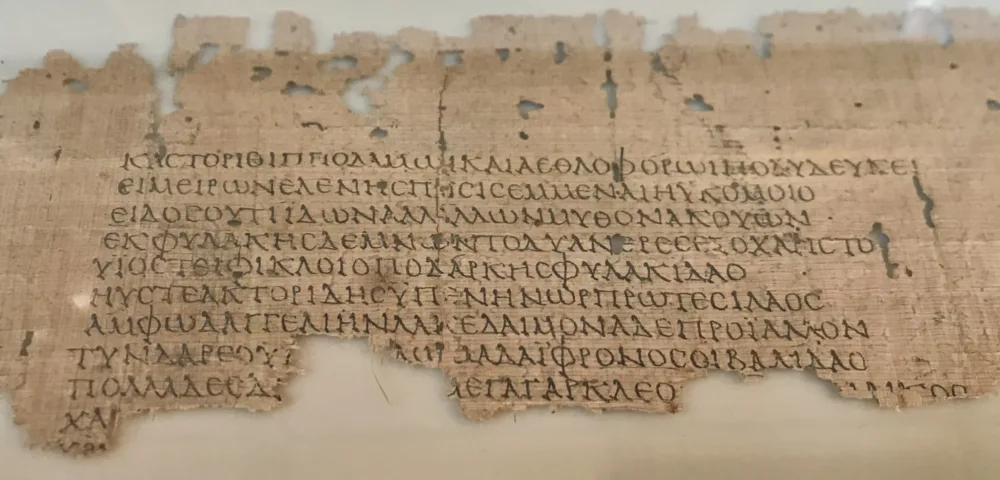 ΚΑΣΤΟΡΙΘΙΠΠΟΔΑΜΩΙΚΑΙΑΕΘΛΟΦΟΡΩΙΠΟΛΥΔΕΥΚΕΙ
ΕΙΜΕΙΡΩΝΕΛΕΝΗΣΠΟΣΙΣΕΜΜΕΝΑΙΗΥΚΟΜΟΙΟ
ΕΙΔΟΣΟΥΤΙΪΔΩΝΑΛΛΑΛΛΩΝΜΥΘΟΝΑΚΟΥΩΝ
ΕΚΦΥΛΑΚΗΣΔΕΜΝΩΝΤΟΔΥΑΝΕΡΕΣΕΞΟΧΑΡΙΣΤΟΙ
ΥΙΟΣΤΕΙΦΙΚΛΟΙΟΠΟΔΑΡΚΗΣΦΥΛΑΚΙΔΑΟ
ΗΥΣΤΕΑΚΤΟΡΙΔΗΣΫΠΕΡΗΝΩΡΠΡΩΤΕΣΙΛΑΟΣ
ΑΜΦΩΔΑΓΓΕΛΙΗΝΛΑΚΕΔΑΙΜΟΝΑΔΕΠΡΟΪΑΛΛΟΝ
ΤΥΝΔΑΡΕΟΥ ΜΑΔΑΪΦΡΟΝΟΣΟΙΒΑΛΙΔΑΟ
ΠΟΛΛΑΔΕΕΔ ΜΕΓΑΓΑΡΚΛΕΟ
ΧΑ